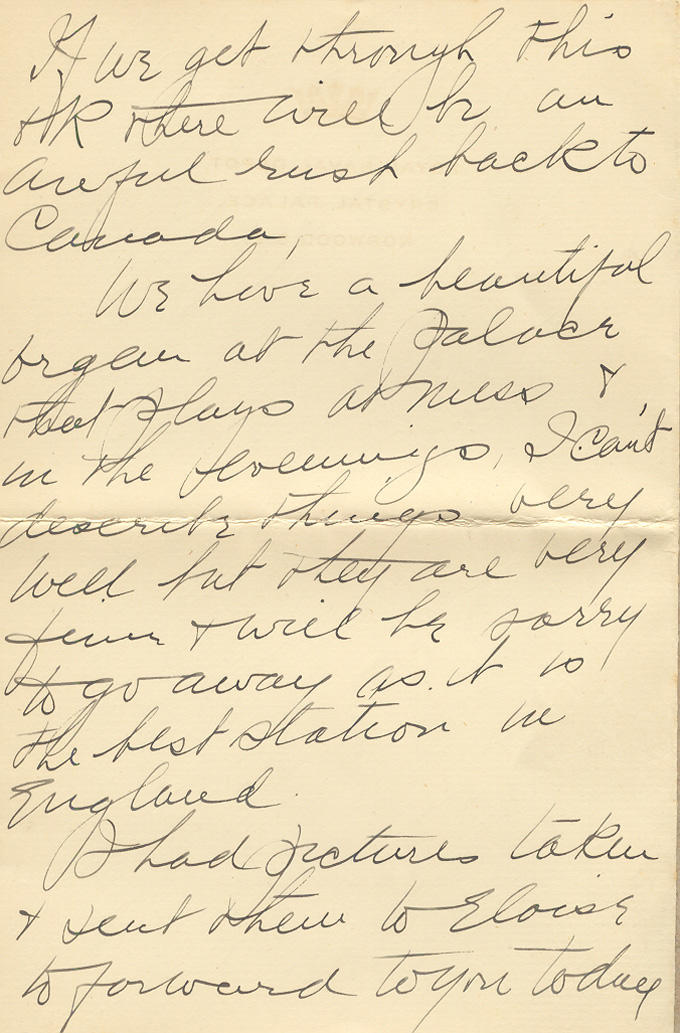 If we get through this
OK there will be an
awful rush back to
Canada,
We have a beautiful
organ at the Palace
that plays at mess &
in the evenings, I can't
describe things very
well but they are very
fine & will be sorry
to go away as it is
the best station in
England.
I had pictures taken
& sent them to Eloise
to forward to you today